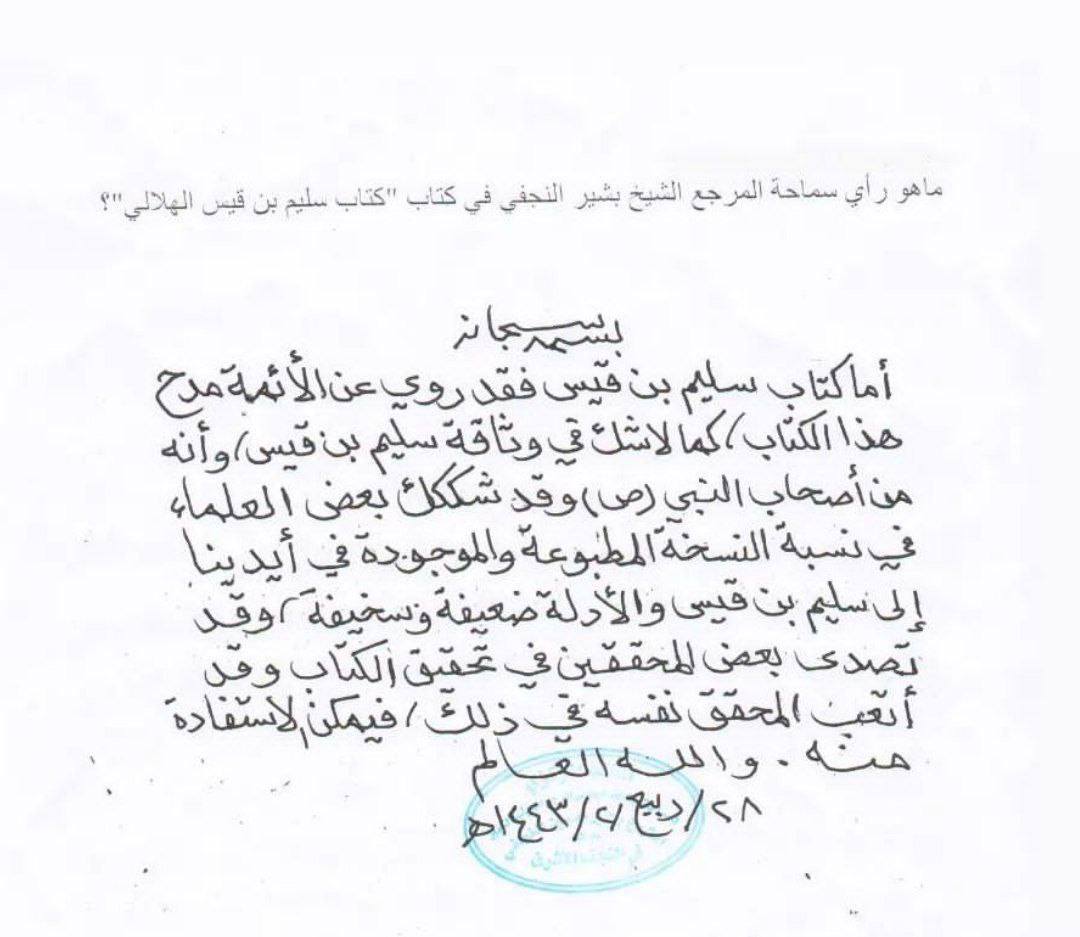 ماهو رأي سماحة المرجع الشيخ بشير النجفي في كتاب "كتاب سليم بن قيس الهلالي"؟
بسمه سبحانه
أما كتاب سليم بن قيس فقد روي عن الأئمة مدح
هذا الكتاب، كما لاشك في وثاقة سليم بن قيس، وأنه
من أصحاب النبي (ص) وقد شككك بعض العلماء
في نسبة النسخة المطبوعة والموجودة في أيدينا
إلى سليم بن قيس والأدلة ضعيفة وسخيفة، وقد
تصدى بعض المحققين في تحقيق الكتاب وقد
أتعب المحقق نفسه في ذلك، فيمكن الاستفادة
منه . والله العالم
٢٨/ربيع ٢/١٤٤٣هـ